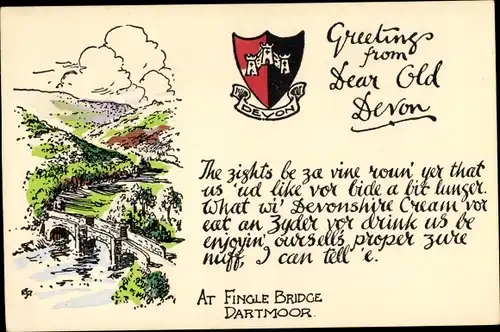 Greetings
from
Dear Old
Devon
DEVON
The zights be za vine roun' yer that
us 'ud like vor bide a bit lunger.
What wi' Devonshire Cream vor
eat an Zyder vor drink us be
enjoyin' oursells proper zure
nuff, I can tell 'e.
AT FINGLE BRIDGE
DARTMOOR.